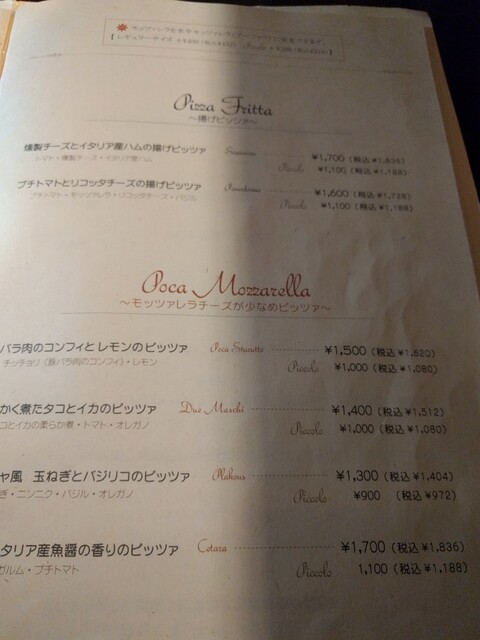 Pizza Fritta
～揚げピッツァ～
燻製チーズとイタリア産ハムの揚げピッツァ ¥1,700 (税込¥1,836)
トマト・燻製チーズ・イタリア産ハム Piccolo ¥1,100 (税込¥1,188)
プチトマトとリコッタチーズの揚げピッツァ ¥1,600 (税込¥1,728)
プチトマト・モッツァレラ・リコッタチーズ・バジル Piccolo ¥1,100 (税込¥1,188)
Poca Mozzarella
～モッツァレラチーズが少なめピッツァ～
バラ肉のコンフィとレモンのピッツァ ¥1,500 (税込¥1,620)
チッチョリ(豚バラ肉のコンフィ)・レモン Piccolo ¥1,000 (税込¥1,080)
かく煮たタコとイカのピッツァ Due Maschi ¥1,400 (税込¥1,512)
コとイカの柔らか煮・トマト・オレガノ Piccolo ¥1,000 (税込¥1,080)
ヤ風 玉ねぎとバジリコのピッツァ ¥1,300 (税込¥1,404)
ぎ・ニンニク・バジル・オレガノ Piccolo ¥900 (税込¥972)
タリア産魚醤の香りのピッツァ Cetara ¥1,700 (税込¥1,836)
ガルム・プチトマト Piccolo 1,100 (税込¥1,188)